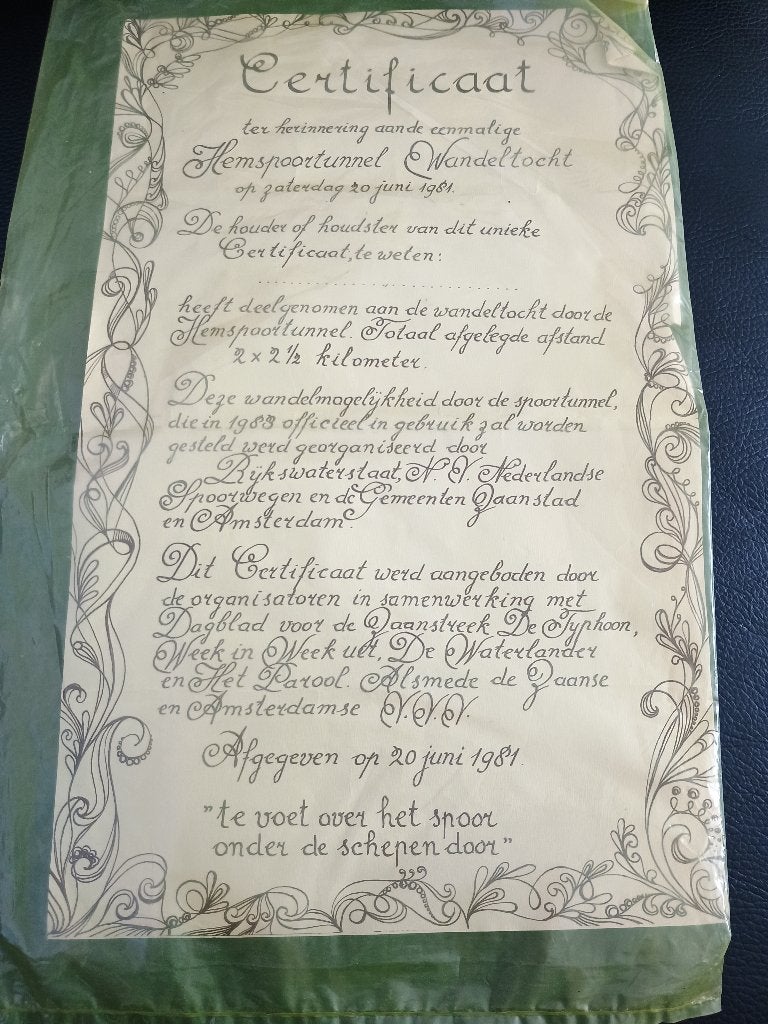 Certificaat
ter herinnering aan de eenmalige
Hemspoortunnel Wandeltocht
op zaterdag 20 juni 1981.
De houder of houdster van dit unieke
Certificaat, te weten:
heeft deelgenomen aan de wandeltocht door de
Hemspoortunnel. Totaal afgelegde afstand
2 x 2 1/2 kilometer.
Deze wandelmogelijkheid door de spoortunnel,
die in 1983 officieel in gebruik zal worden
gesteld werd georganiseerd door
Rijkswaterstaat, N.V. Nederlandse
Spoorwegen en de Gemeenten Zaanstad
en Amsterdam.
Dit Certificaat werd aangeboden door
de organisatoren in samenwerking met
Dagblad voor de Zaanstreek De Typhoon,
Week in Week uit, De Waterlander
en Het Parool. Alsmede de Zaanse
en Amsterdamse V.V.V.
Afgegeven op 20 juni 1981.
"te voet over het spoor
onder de schepen door"